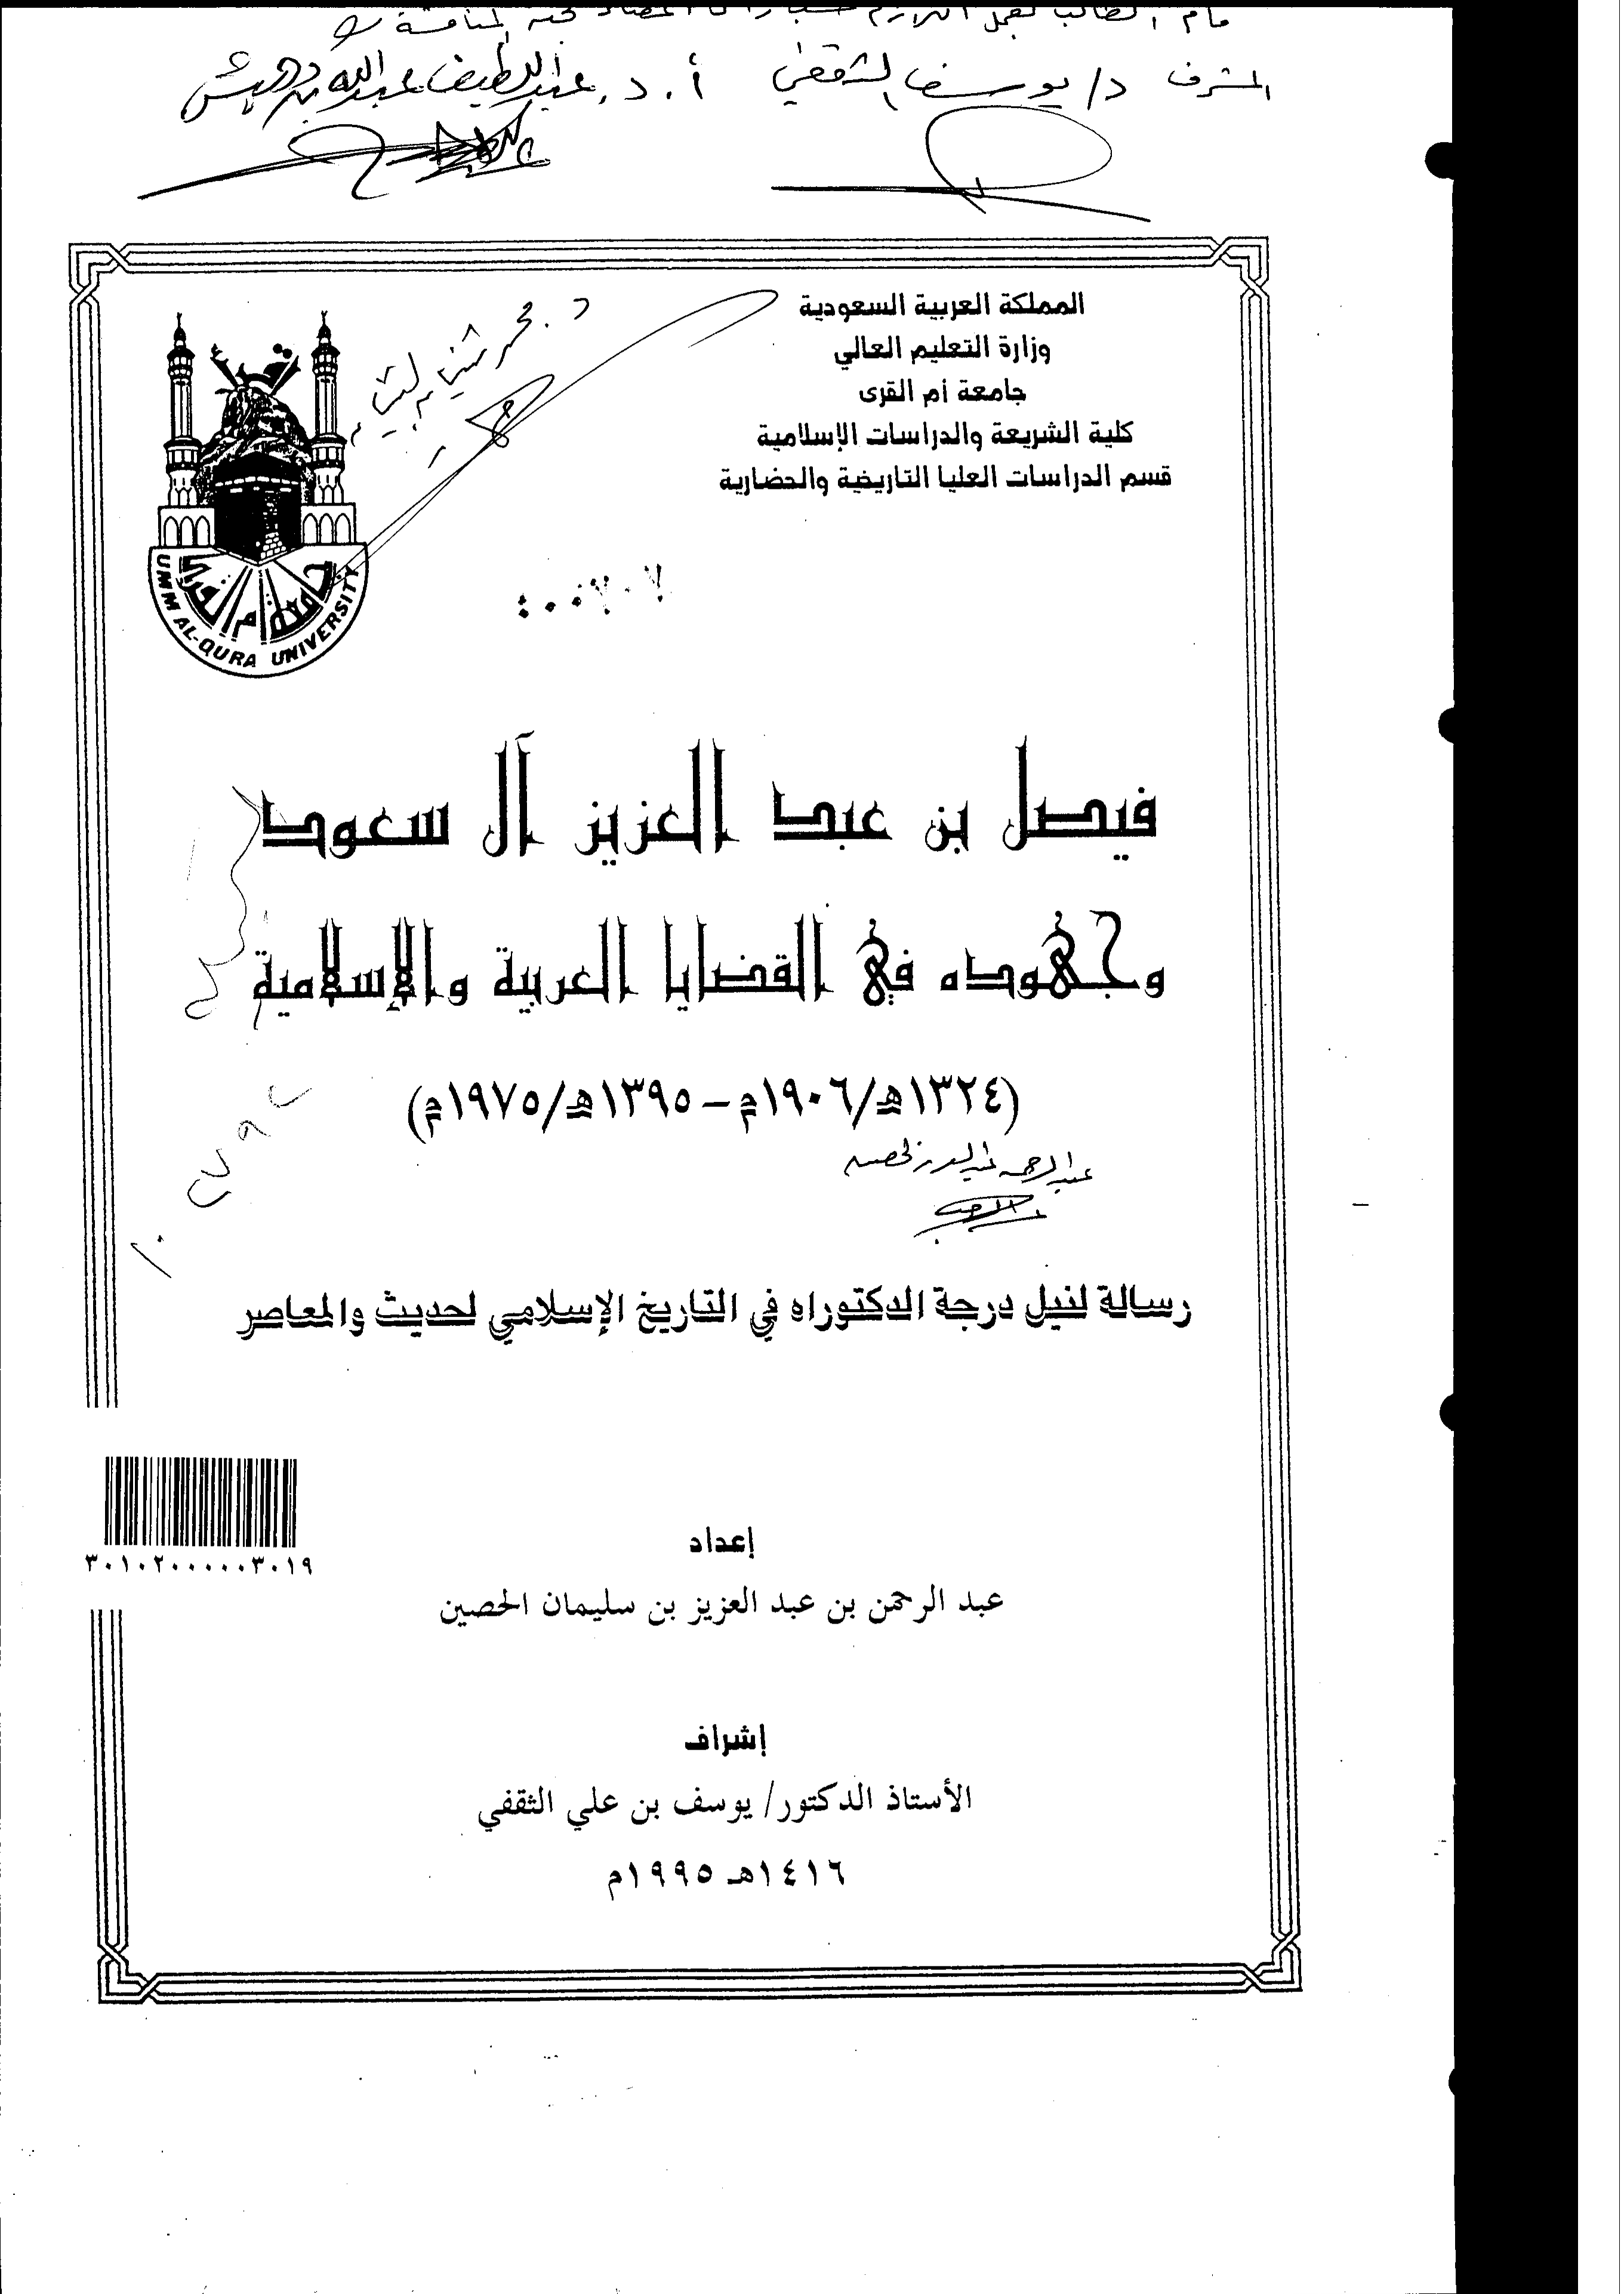 المشرف د/ يوسف الثقفي أ. د. عبد اللطيف عبد الله بن دهيش
المملكة العربية السعودية
وزارة التعليم العالي
جامعة أم القرى
كلية الشريعة والدراسات الإسلامية
قسم الدراسات العليا التاريخية والحضارية
جامعة أم القرى
UMM AL-QURA UNIVERSITY
فيصل بن عبد العزيز آل سعود
وجهوده في القضايا العربية والإسلامية
(١٣٢٤هـ/١٩٠٦م – ١٣٩٥هـ/١٩٧٥م)
رسالة لنيل درجة الدكتوراه في التاريخ الإسلامي لحديث والمعاصر
٣٠١٠٢٠٠٠٠٠٣٠١٩
إعداد
عبد الرحمن بن عبد العزيز بن سليمان الحصين
إشراف
الأستاذ الدكتور/ يوسف بن علي الثقفي
١٤١٦هـ ١٩٩٥م